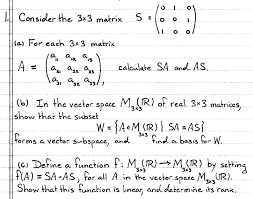 1. Consider the 3×3 matrix S = ( 0 1 0
0 0 1
1 0 0 )
(a) For each 3×3 matrix
A = ( a₁₁ a₁₂ a₁₃
a₂₁ a₂₂ a₂₃
a₃₁ a₃₂ a₃₃ ), calculate SA and AS.
(b) In the vector space M₃ₓ₃(ℝ) of real 3×3 matrices,
show that the subset
W = {A∈M₃ₓ₃(ℝ) | SA=AS}
forms a vector subspace, and find a basis for W.
(c) Define a function f: M₃ₓ₃(ℝ) → M₃ₓ₃(ℝ) by setting
f(A) = SA-AS, for all A in the vector space M₃ₓ₃(ℝ).
Show that this function is linear, and determine its rank.